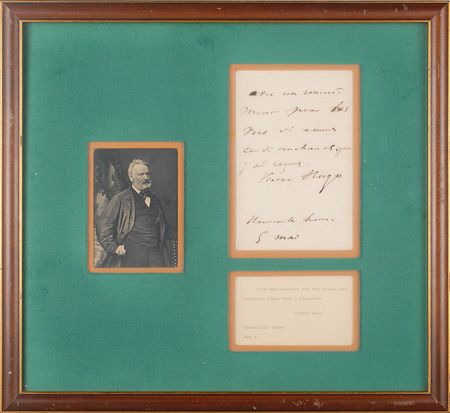 mens pour les
vers si émus
et si touchans que
j'ai reçus.
Victor Hugo
Hauteville house.
5 mai
With appreciation for the moving and
touching lines that I received,
Victor Hugo
Hauteville House
May 5